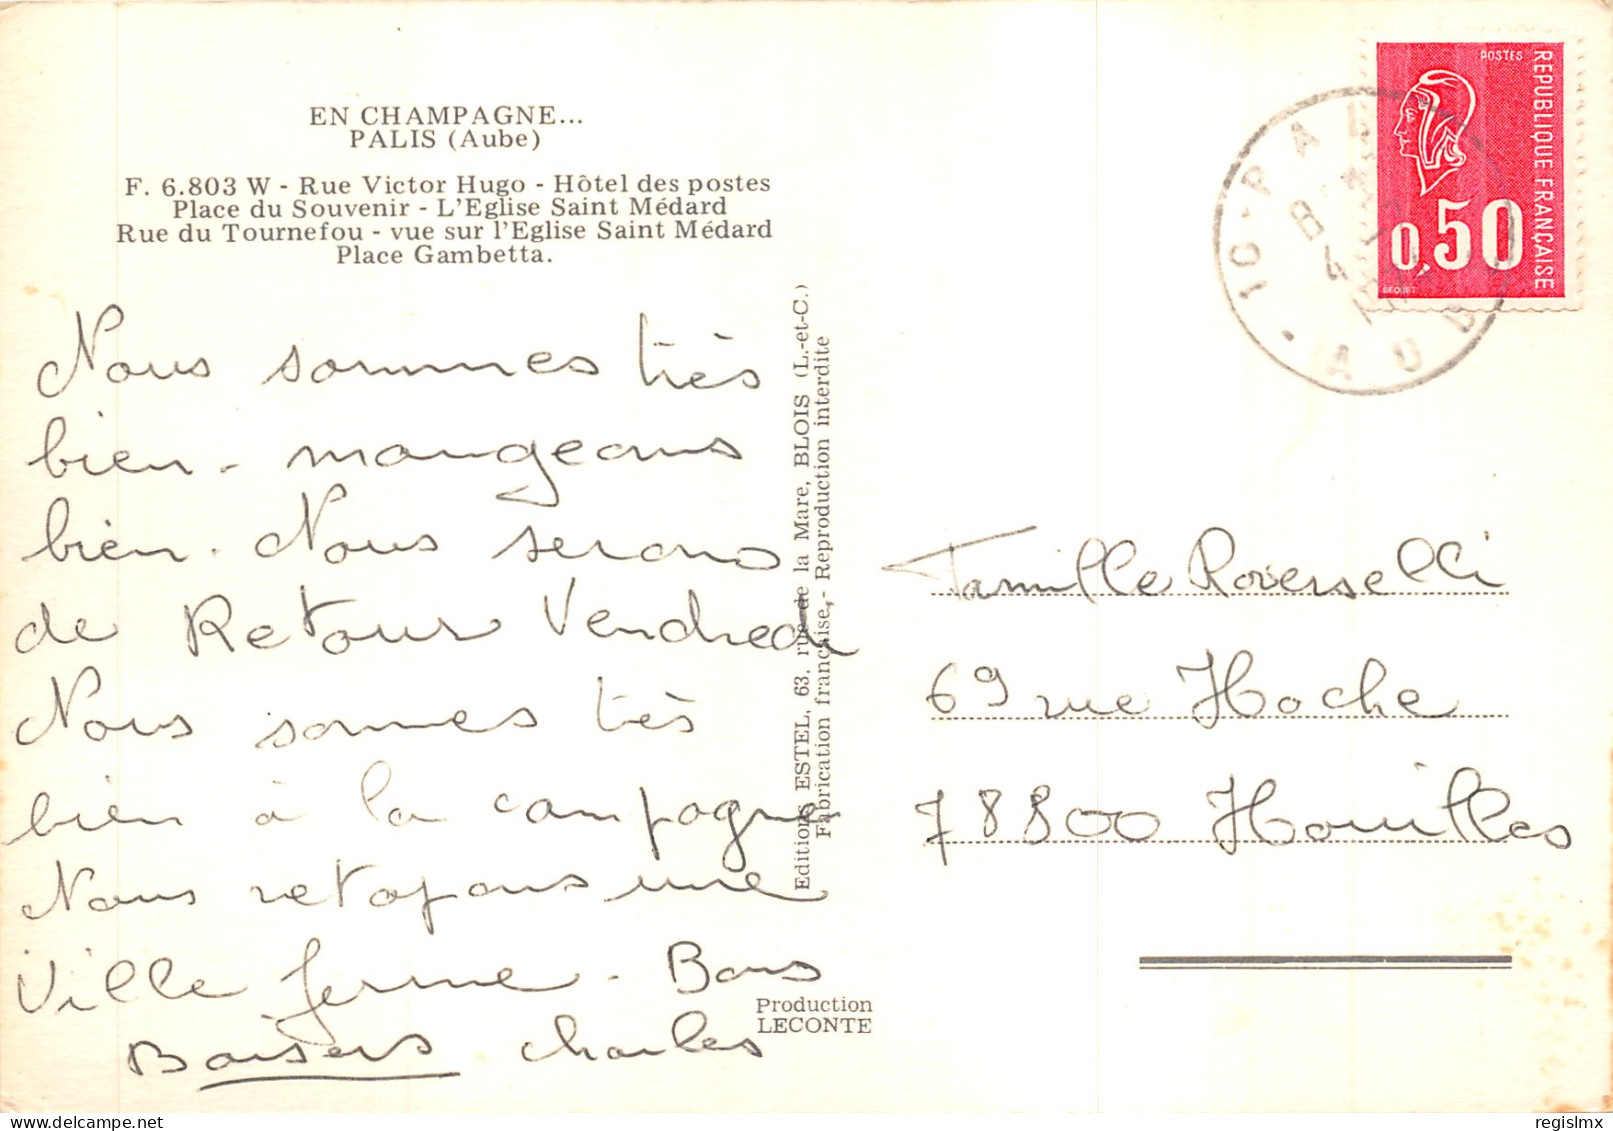 EN CHAMPAGNE...
PALIS (Aube)
F. 6.803 W - Rue Victor Hugo - Hôtel des postes
Place du Souvenir - L'Eglise Saint Médard
Rue du Tournefou - vue sur l'Eglise Saint Médard
Place Gambetta.
Nous sommes très
bien - mangeons
bien. Nous serons
de Retour Vendredi
Nous sommes très
bien à la campagne
Nous retapons une
Ville ferme - Bons
Baisers Charles
Editions ESTEL, 63, rue de la Mare, BLOIS (L.-et-C.)
Fabrication française,- Reproduction interdite
Production
LECONTE
POSTES
REPUBLIQUE FRANÇAISE
0,50
BEQUET
10 - PAL
AUB
Famille Roverselli
69 rue Hoche
78800 Houilles
regislmx